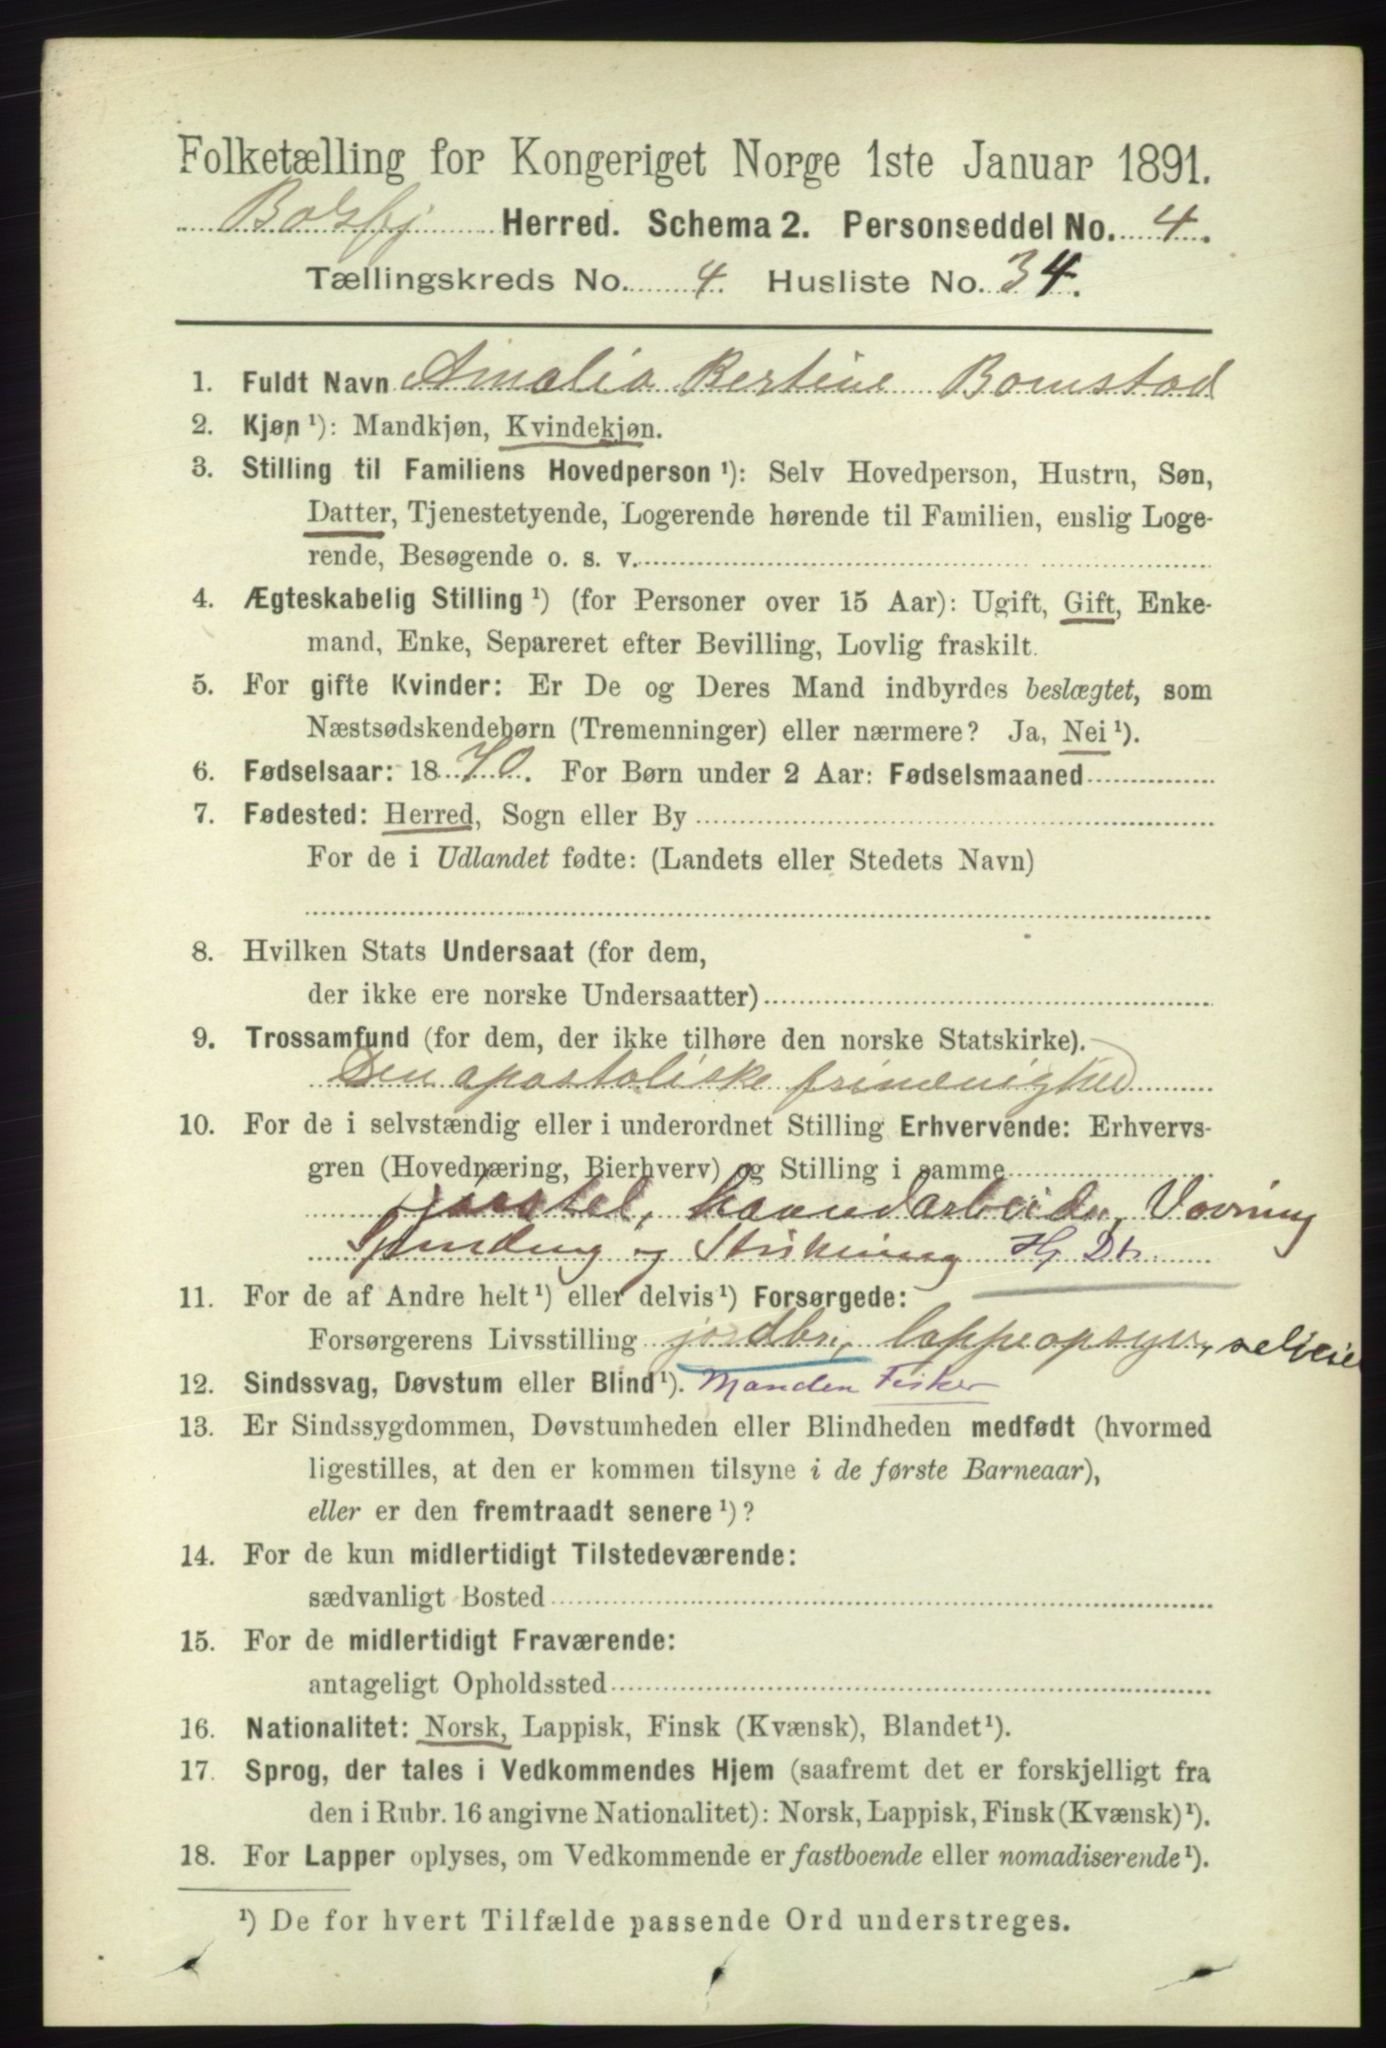 Folketælling for Kongeriget Norge 1ste Januar 1891.
Balsfj Herred. Schema 2. Personseddel No. 4.
Tællingskreds No. 4. Husliste No. 34.
1. Fuldt Navn Amalia Bertine Bomstad
2. Kjøn ¹): Mandkjøn, Kvindekjøn.
3. Stilling til Familiens Hovedperson ¹): Selv Hovedperson, Hustru, Søn,
Datter, Tjenestetyende, Logerende hørende til Familien, enslig Loge-
rende, Besøgende o. s. v.
4. Ægteskabelig Stilling ¹) (for Personer over 15 Aar): Ugift, Gift, Enke-
mand, Enke, Separeret efter Bevilling, Lovlig fraskilt.
5. For gifte Kvinder: Er De og Deres Mand indbyrdes beslægtet, som
Næstsødskendebørn (Tremenninger) eller nærmere? Ja, Nei ¹).
6. Fødselsaar: 1870. For Børn under 2 Aar: Fødselsmaaned
7. Fødested: Herred, Sogn eller By
For de i Udlandet fødte: (Landets eller Stedets Navn)
8. Hvilken Stats Undersaat (for dem,
der ikke ere norske Undersaatter)
9. Trossamfund (for dem, der ikke tilhøre den norske Statskirke).
Den apostoliske frimenighed
10. For de i selvstændig eller i underordnet Stilling Erhvervende: Erhvervs-
gren (Hovednæring, Bierhverv) og Stilling i samme
haandarbeide, Vævning
Spinding og Strikning Hj Dtr.
11. For de af Andre helt ¹) eller delvis ¹) Forsørgede:
Forsørgerens Livsstilling jordbr, lappeopsyn,
12. Sindssvag, Døvstum eller Blind ¹). Manden Fisker
13. Er Sindssygdommen, Døvstumheden eller Blindheden medfødt (hvormed
ligestilles, at den er kommen tilsyne i de første Barneaar),
eller er den fremtraadt senere ¹)?
14. For de kun midlertidigt Tilstedeværende:
sædvanligt Bosted
15. For de midlertidigt Fraværende:
antageligt Opholdssted
16. Nationalitet: Norsk, Lappisk, Finsk (Kvænsk), Blandet ¹).
17. Sprog, der tales i Vedkommendes Hjem (saafremt det er forskjelligt fra
den i Rubr. 16 angivne Nationalitet): Norsk, Lappisk, Finsk (Kvænsk) ¹).
18. For Lapper oplyses, om Vedkommende er fastboende eller nomadiserende ¹).
¹) De for hvert Tilfælde passende Ord understreges.